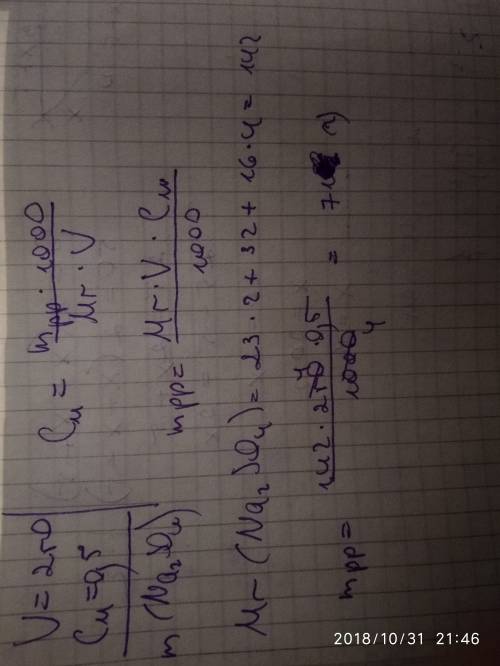 V = 250
Cм = 0,5
m (Na₂SO₄)
Cм = mрр · 1000 / Mr · V
mрр = Mr · V · Cм / 1000
Mr (Na₂SO₄) = 23 · 2 + 32 + 16 · 4 = 142
mрр = 142 · 250 · 0,5 / 1000 4 = 71
2018/10/31 21:46